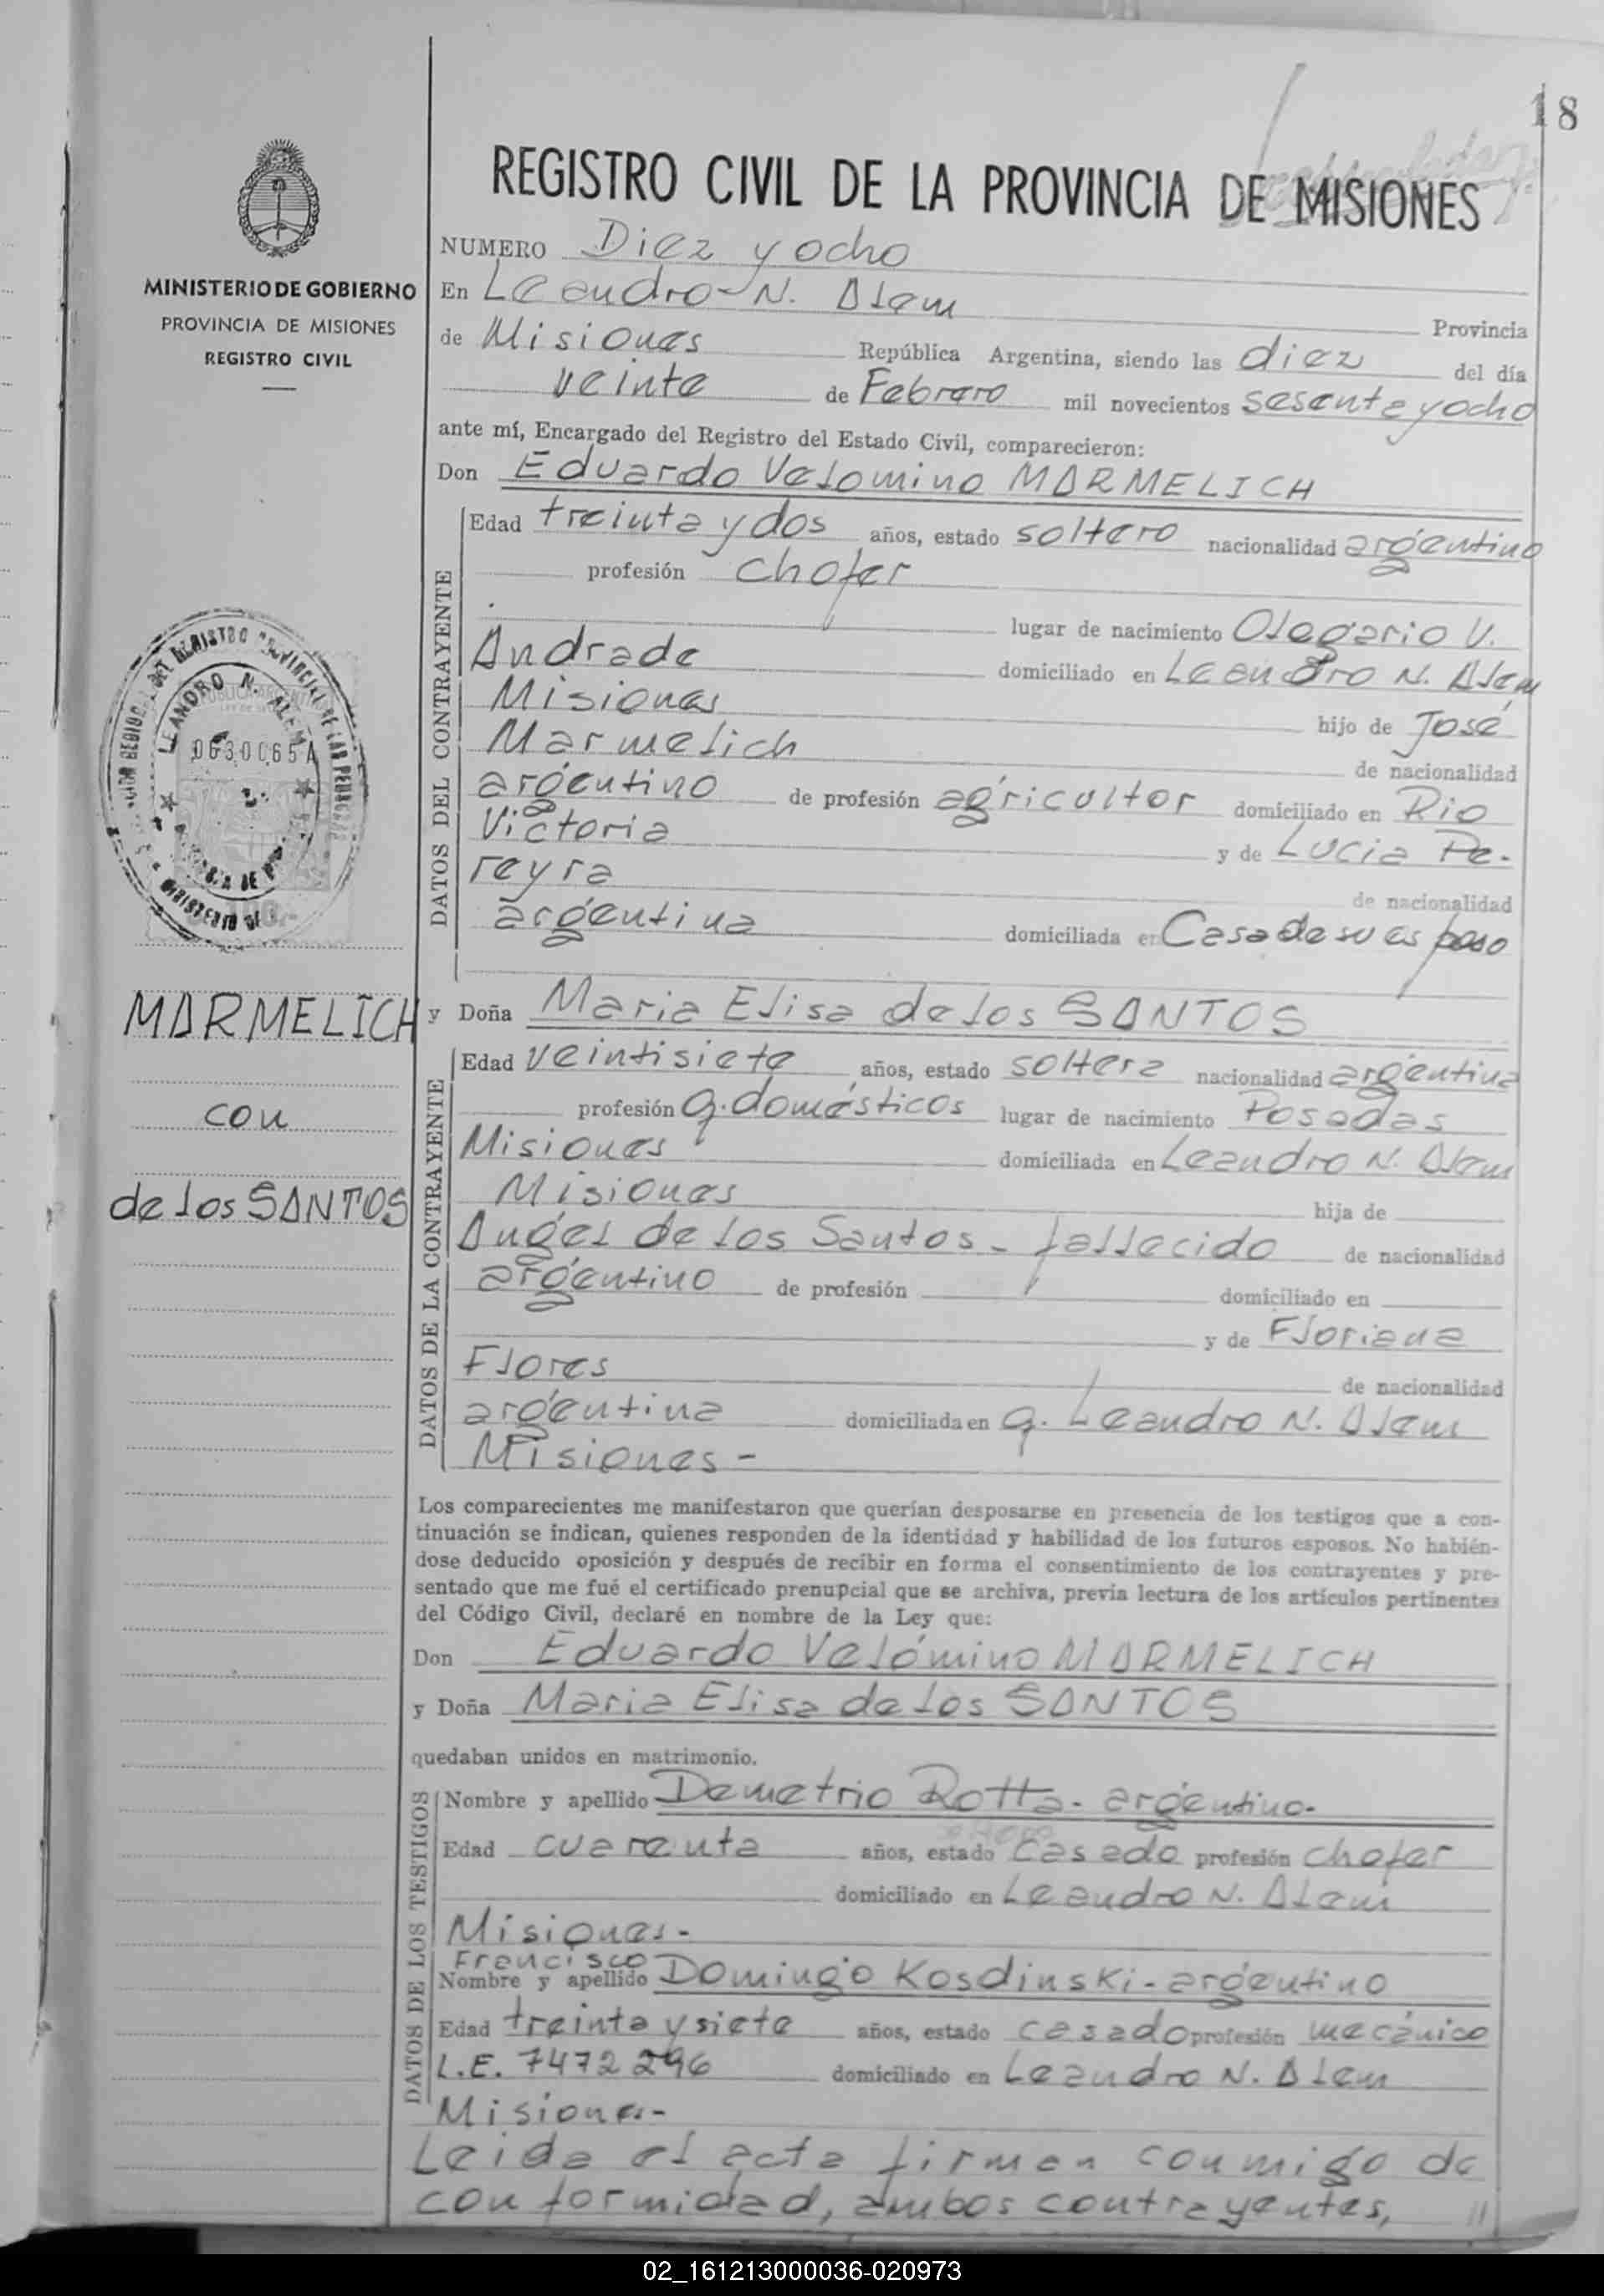 18
REGISTRO CIVIL DE LA PROVINCIA DE MISIONES
MINISTERIO DE GOBIERNO
PROVINCIA DE MISIONES
REGISTRO CIVIL
LEANDRO N. ALEM
0630065A
MARMELICH
con
de los SANTOS
NUMERO Diez y ocho
En Leandro N. Alem Provincia
de Misiones República Argentina, siendo las diez del día
veinte de Febrero mil novecientos sesenta y ocho
ante mí, Encargado del Registro del Estado Civil, comparecieron:
Don Eduardo Velomino MARMELICH
DATOS DEL CONTRAYENTE
Edad treinta y dos años, estado soltero nacionalidad argentino
profesión chofer
lugar de nacimiento Olegario V.
Andrade domiciliado en Leandro N. Alem
Misiones hijo de José
Marmelich de nacionalidad
argentino de profesión agricultor domiciliado en Rio
Victoria y de Lucia Pe-
reyra de nacionalidad
argentina domiciliada en Casa de su esposo
y Doña Maria Elisa de los SANTOS
DATOS DE LA CONTRAYENTE
Edad veintisiete años, estado soltera nacionalidad argentina
profesión q. domésticos lugar de nacimiento Posadas
Misiones domiciliada en Leandro N. Alem
Misiones hija de
Angel de los Santos - fallecido de nacionalidad
argentino de profesión domiciliado en
y de Floriana
Flores de nacionalidad
argentina domiciliada en q. Leandro N. Alem
Misiones -
Los comparecientes me manifestaron que querían desposarse en presencia de los testigos que a con-
tinuación se indican, quienes responden de la identidad y habilidad de los futuros esposos. No habién-
dose deducido oposición y después de recibir en forma el consentimiento de los contrayentes y pre-
sentado que me fué el certificado prenupcial que se archiva, previa lectura de los artículos pertinentes
del Código Civil, declaré en nombre de la Ley que:
Don Eduardo Velómino MARMELICH
y Doña Maria Elisa de los SANTOS
quedaban unidos en matrimonio.
DATOS DE LOS TESTIGOS
Nombre y apellido Demetrio Rotta - argentino-
Edad cuarenta años, estado casado profesión chofer
domiciliado en Leandro N. Alem
Misiones-
Francisco
Nombre y apellido Domingo Kosdinski - argentino
Edad treinta y siete años, estado casado profesión mecánico
L.E. 7472296 domiciliado en Leandro N. Alem
Misiones-
Leida el acta firman conmigo de
conformidad, ambos contrayentes, //
02_161213000036-020973